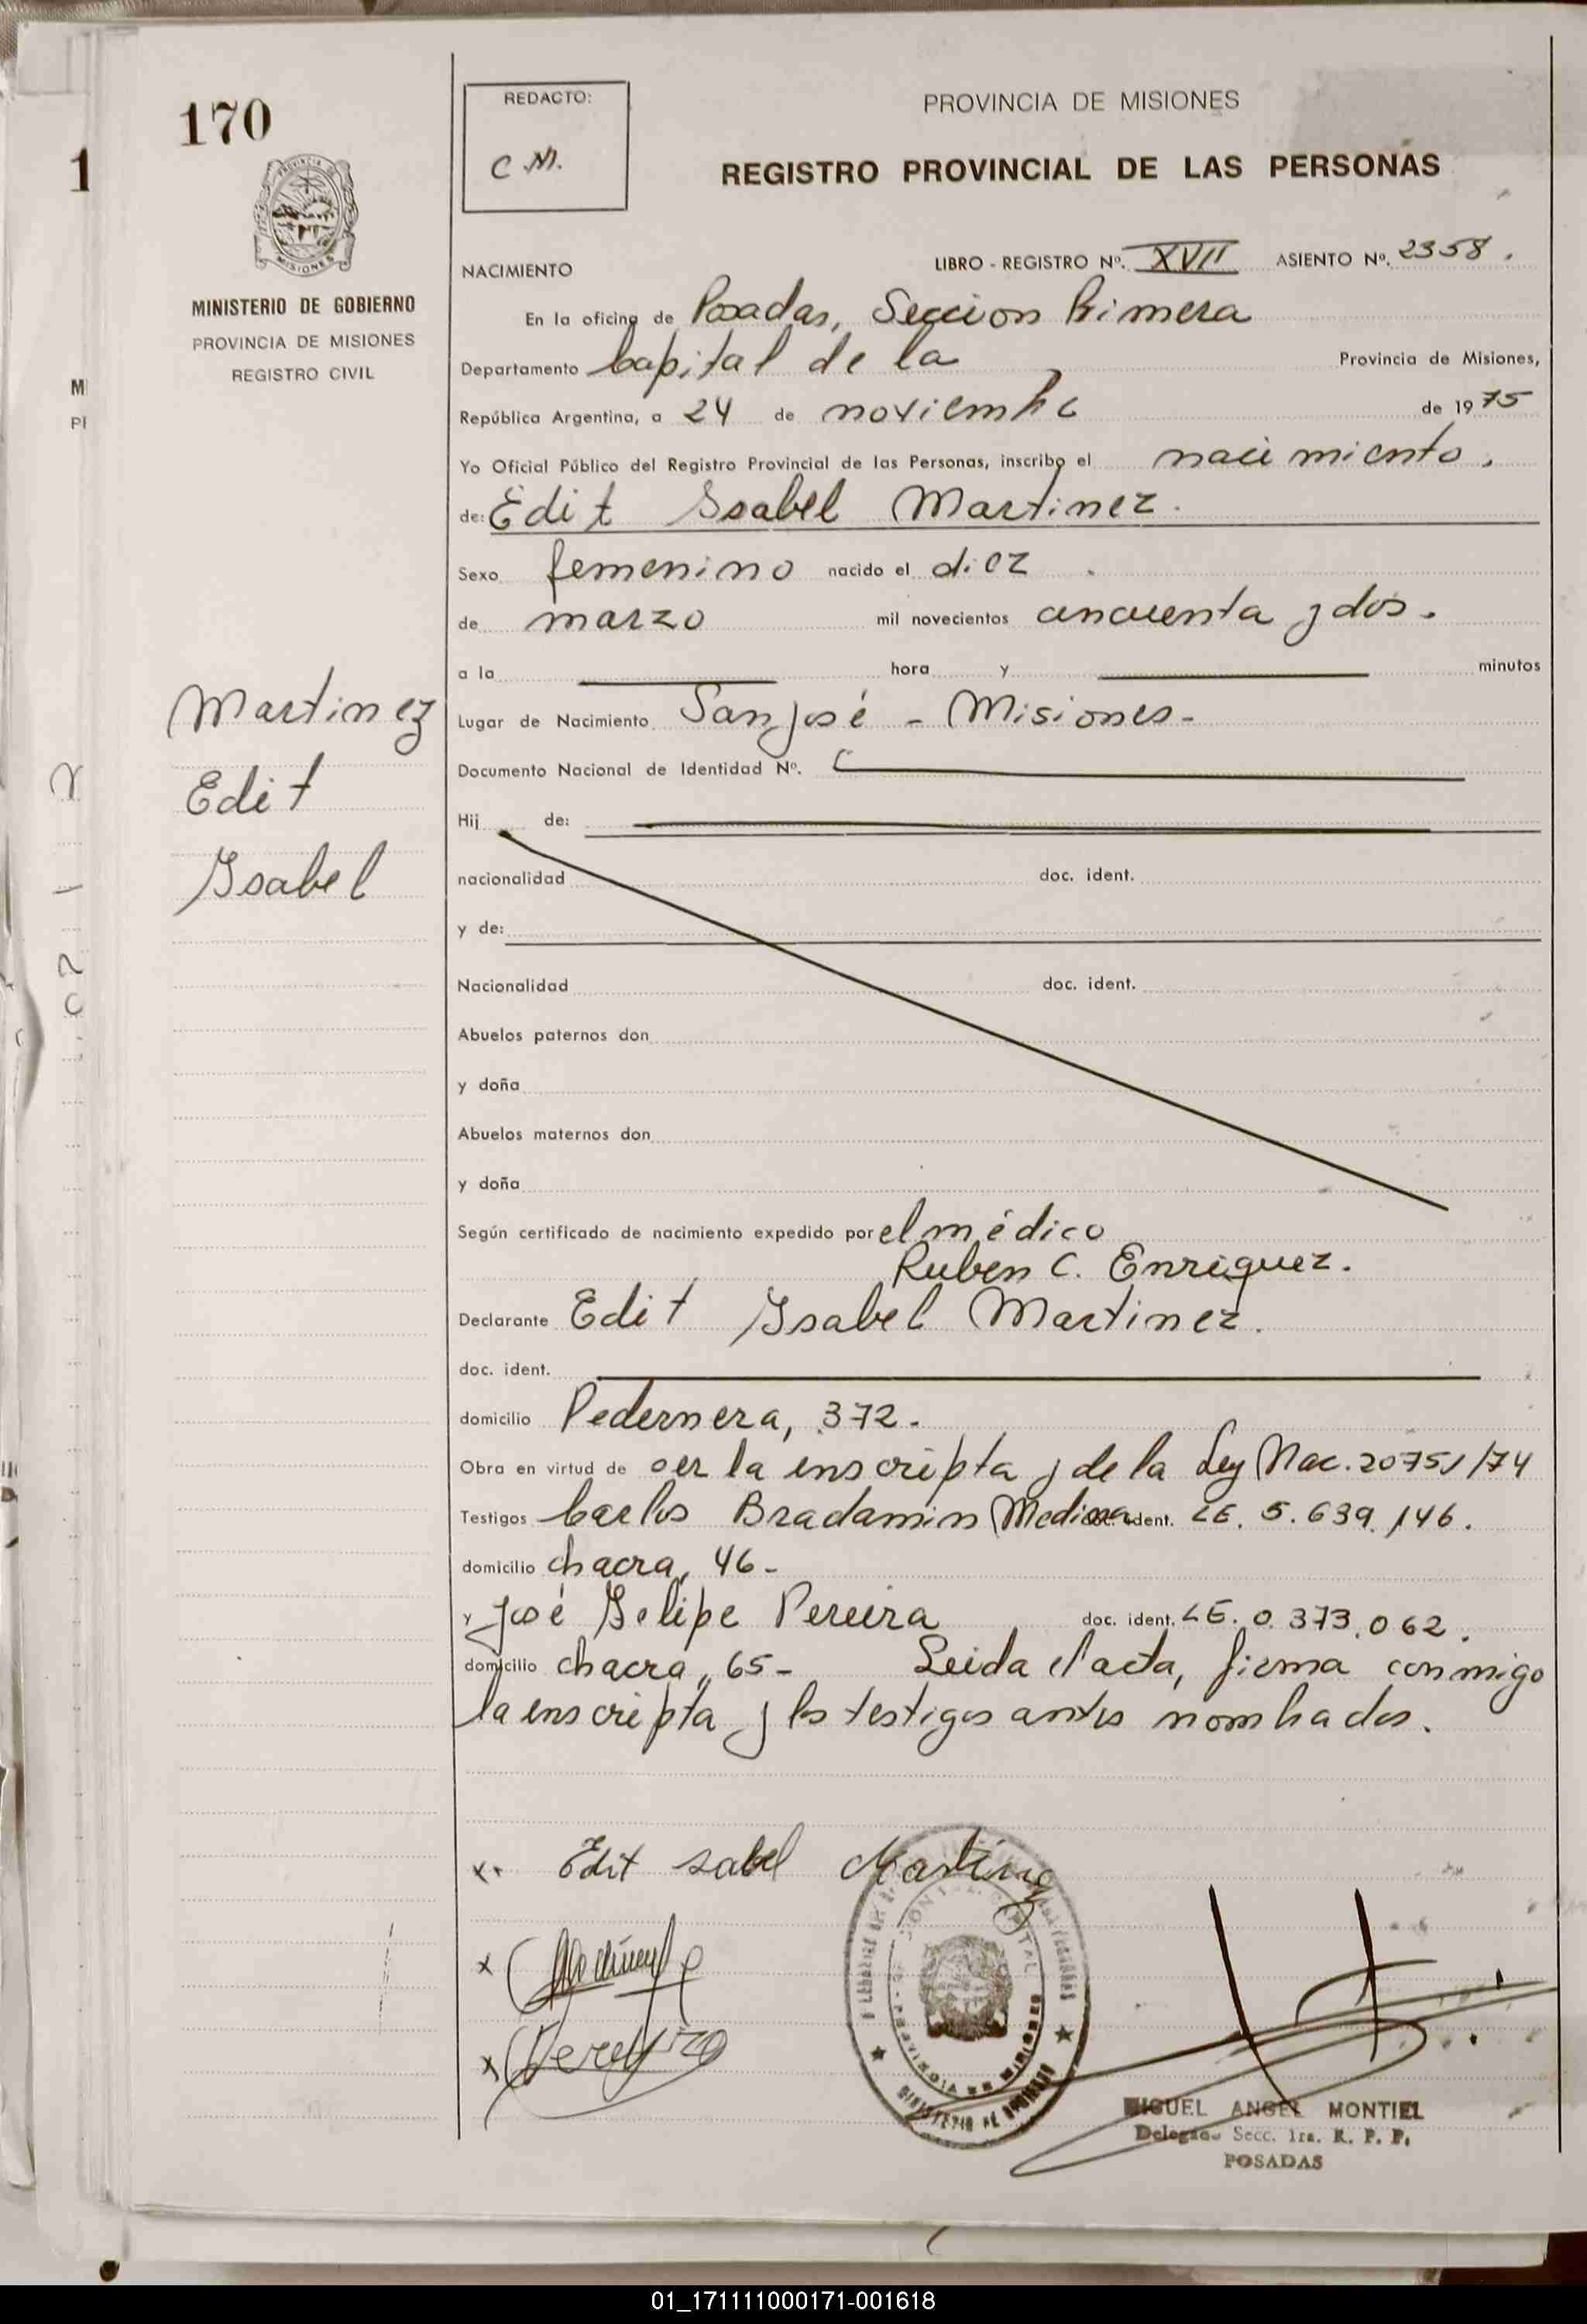 170
REDACTO:
C M.
PROVINCIA DE MISIONES
REGISTRO PROVINCIAL DE LAS PERSONAS
MISIONES
MINISTERIO DE GOBIERNO
PROVINCIA DE MISIONES
REGISTRO CIVIL
NACIMIENTO
LIBRO - REGISTRO Nº. XVII ASIENTO Nº. 2358.
En la oficina de Posadas, Seccion Primera
Departamento Capital de la Provincia de Misiones,
República Argentina, a 24 de noviembre de 1975
Yo Oficial Público del Registro Provincial de las Personas, inscribo el nacimiento.
de: Edit Isabel Martinez.
Sexo femenino nacido el diez.
de marzo mil novecientos cincuenta y dos.
a la hora y minutos
Martinez
Edit
Isabel
Lugar de Nacimiento San José - Misiones-
Documento Nacional de Identidad Nº.
Hij de:
nacionalidad doc. ident.
y de:
Nacionalidad doc. ident.
Abuelos paternos don
y doña
Abuelos maternos don
y doña
Según certificado de nacimiento expedido por el médico
Ruben C. Enriquez.
Declarante Edit Isabel Martinez.
doc. ident.
domicilio Pedernera, 372.
Obra en virtud de ser la inscripta y de la Ley Nac. 20751/74
Testigos Carlos Bradamin Medina doc. ident. LE. 5.639.146.
domicilio chacra, 46-
y José Felipe Pereira doc. ident. LE. 0.373.062.
domicilio chacra, 65- Leida el acta, firma conmigo
la inscripta y los testigos antes nombrados.
x. Edit sabel Martinez
x
x Pereira
PROVINCIA DE MISIONES
MINISTERIO DE GOBIERNO
MIGUEL ANGEL MONTIEL
Delegado Secc. 1ra. R. P. P.
POSADAS
01_171111000171-001618